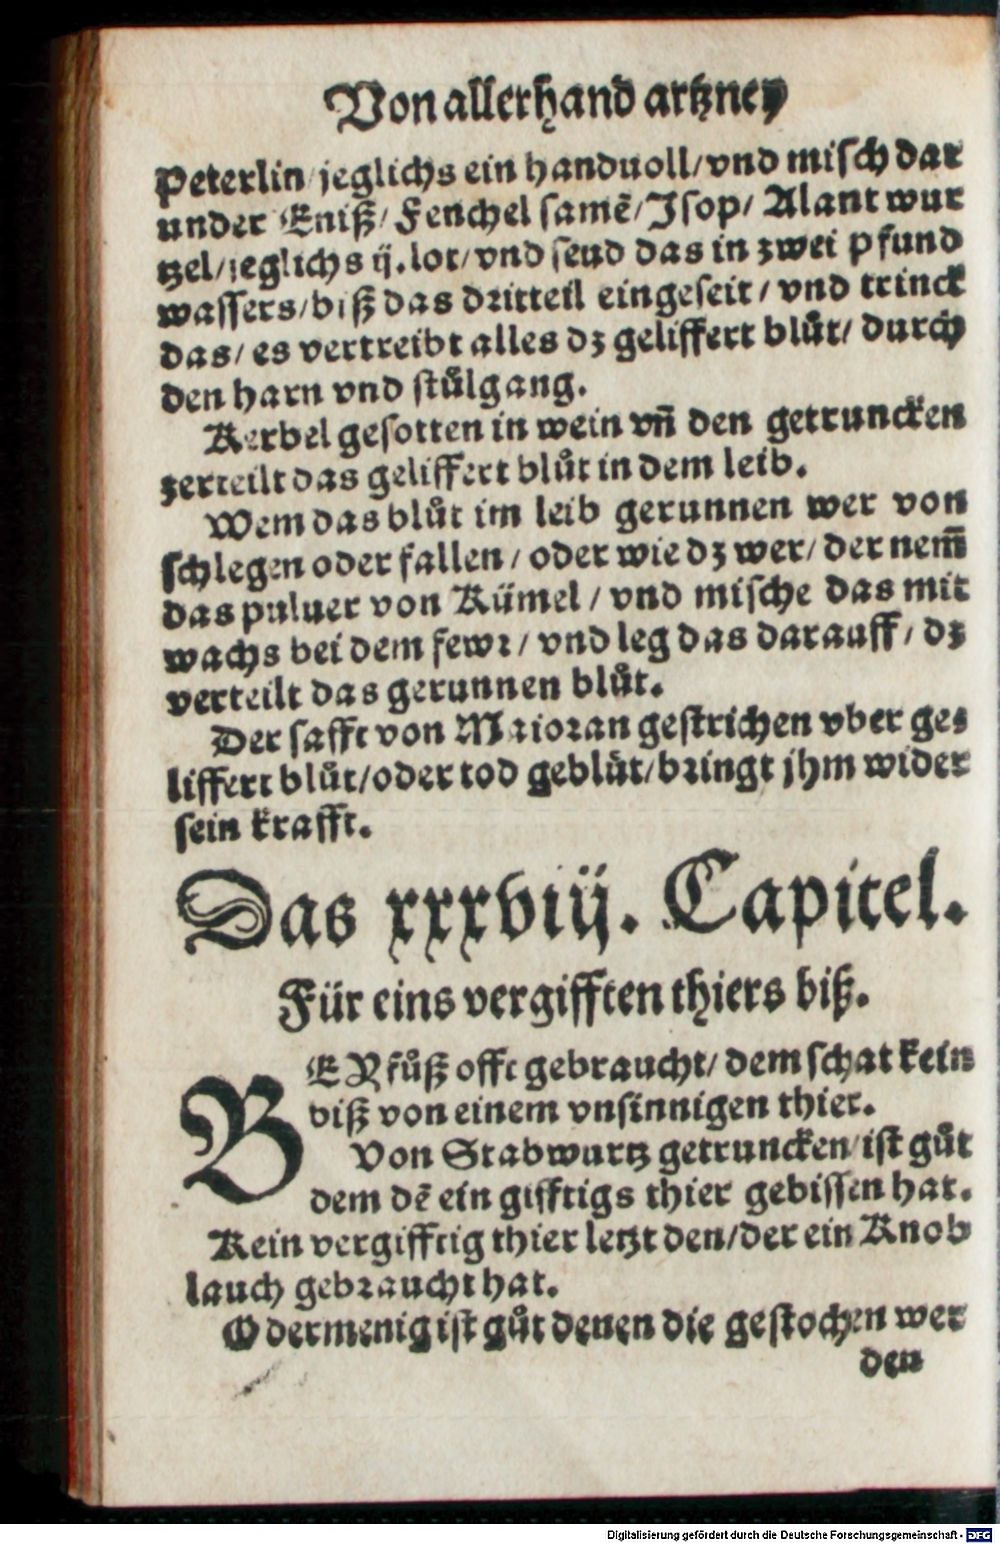 Von allerhand artzney
Peterlin/jeglichs ein handuoll/vnd misch dar
under Eniß/ Fenchel samē/Isop/ Alant wur
tzel/jeglichs ij.lot/vnd seud das in zwei pfund
wassers/biß das dritteil eingeseit/ vnd trinck
das/ es vertreibt alles dz geliffert blůt/ durch
den harn vnd stůlgang.
Kerbel gesotten in wein vn̄ den getruncken
zerteilt das geliffert blůt in dem leib.
Wem das blůt im leib gerunnen wer von
schlegen oder fallen/ oder wie dz wer/ der nem̄
das puluer von Kümel/ vnd mische das mit
wachs bei dem fewr/ vnd leg das darauff/ dz
verteilt das gerunnen blůt.
Der safft von Maioran gestrichen vber ge=
liffert blůt/oder tod geblůt/bringt jhm wider
sein krafft.
Das xxxviij. Capitel.
Für eins vergifften thiers biß.
BEYfůß offt gebraucht/ dem schat kein
biß von einem vnsinnigen thier.
Von Stabwurtz getruncken/ist gůt
dem dē ein gifftigs thier gebissen hat.
Kein vergifftig thier letzt den/der ein Knob
lauch gebraucht hat.
Odermenig ist gůt denen die gestochen wer
den
Digitalisierung gefördert durch die Deutsche Forschungsgemeinschaft - DFG